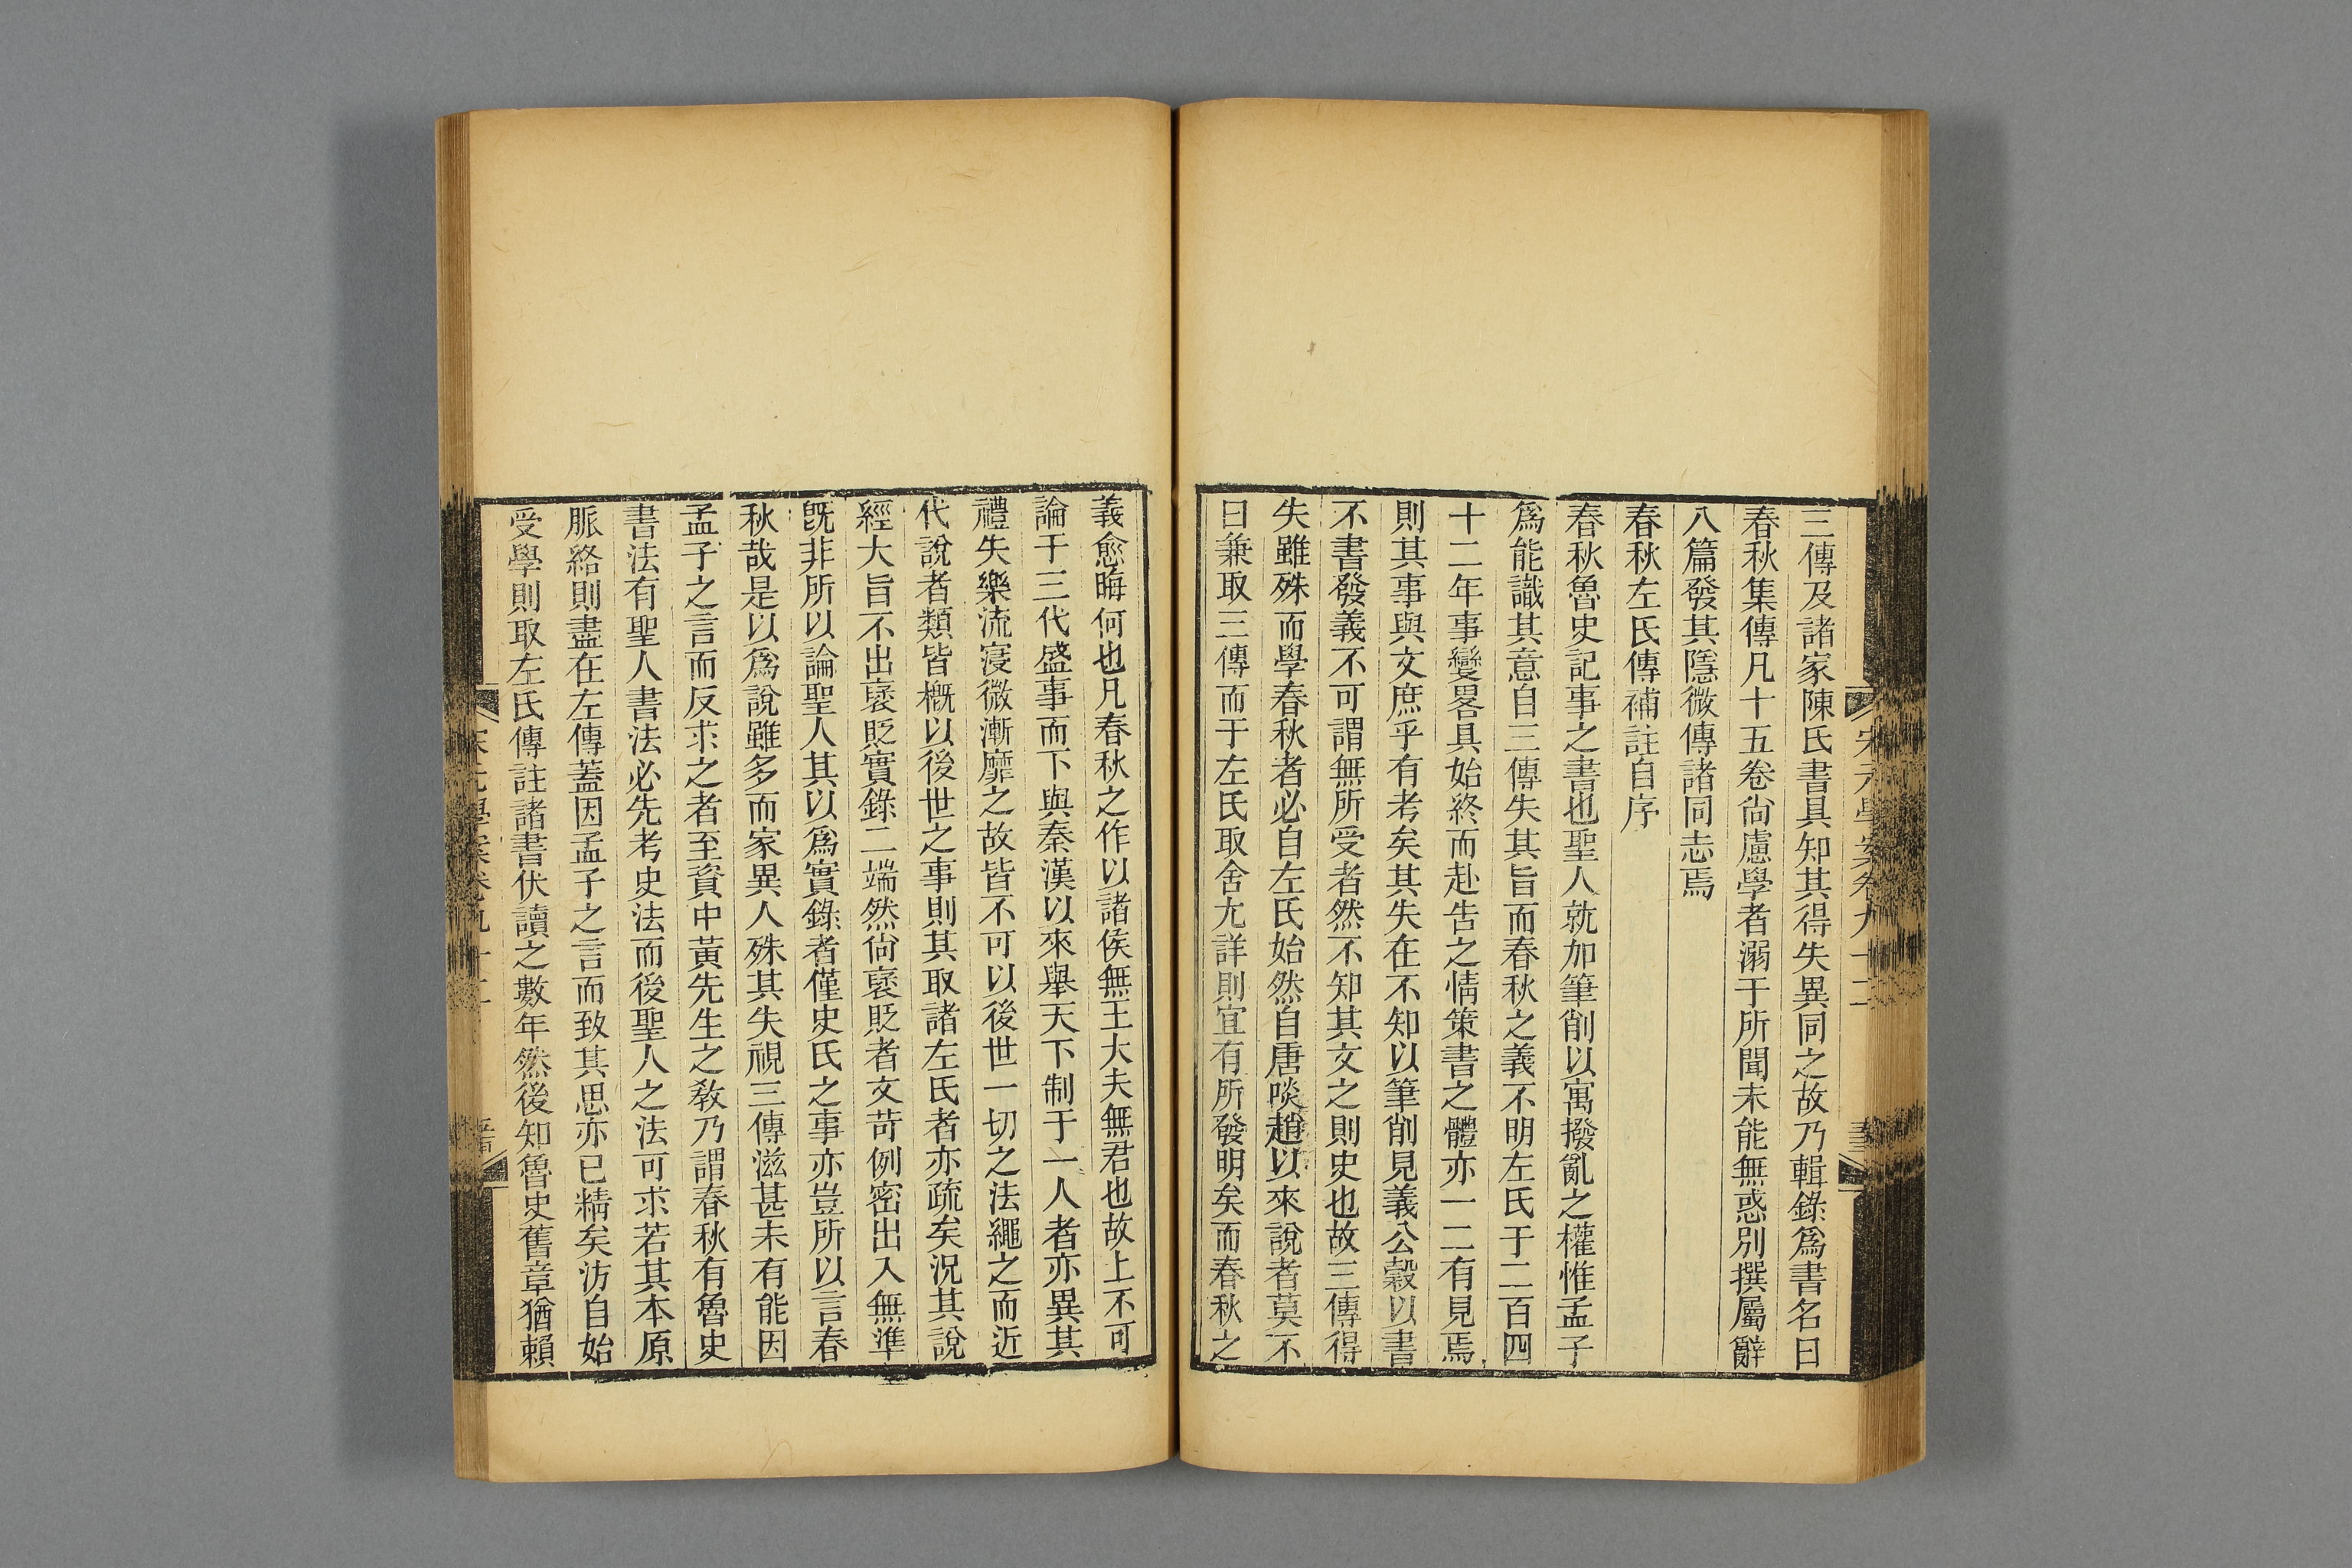 三傳及諸家陳氏書具知其得失異同之故乃輯錄爲書名曰
春秋集傳凡十五卷尙慮學者溺于所聞未能無惑別撰屬辭
八篇發其隱微傳諸同志焉
春秋左氏傳補註自序
春秋魯史記事之書也聖人就加筆削以寓撥亂之權惟孟子
爲能識其意自三傳失其旨而春秋之義不明左氏于二百四
十二年事變畧具始終而赴告之情策書之體亦一二有見焉
則其事與文庶乎有考矣其失在不知以筆削見義公穀以書
不書發義不可謂無所受者然不知其文之則史也故三傳得
失雖殊而學春秋者必自左氏始然自唐啖趙以來說者莫不
曰兼取三傳而于左氏取舍尤詳則宜有所發明矣而春秋之
義愈晦何也凡春秋之作以諸侯無王大夫無君也故上不可
論于三代盛事而下與秦漢以來舉天下制于一人者亦異其
禮失樂流寖微漸靡之故皆不可以後世一切之法繩之而近
代說者類皆槪以後世之事則其取諸左氏者亦疏矣況其說
經大旨不出襃貶實錄二端然尙襃貶者文苛例密出入無準
旣非所以論聖人其以爲實錄者僅史氏之事亦豈所以言春
秋哉是以爲說雖多而家異人殊其失視三傳滋甚未有能因
孟子之言而反求之者至資中黃先生之敎乃謂春秋有魯史
書法有聖人書法必先考史法而後聖人之法可求若其本原
脈絡則盡在左傳蓋因孟子之言而致其思亦已精矣汸自始
受學則取左氏傳註諸書伏讀之數年然後知魯史舊章猶賴